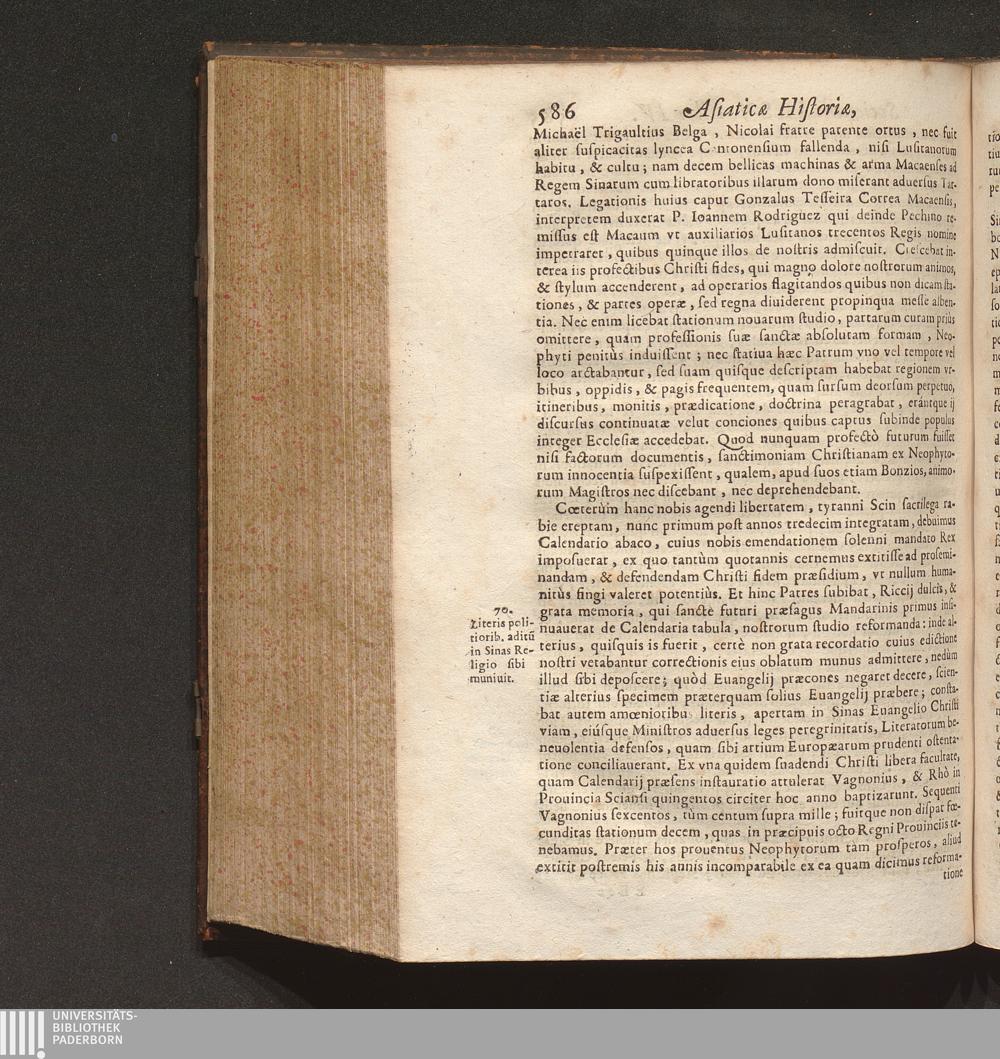 586 Asiaticæ Historiæ,
Michaël Trigaultius Belga , Nicolai fratre patente ortus , nec fuit
aliter ſuſpicacitas lyncea Cantonenſium fallenda , niſi Luſitanorum
habitu , & cultu ; nam decem bellicas machinas & arma Macaenſes ad
Regem Sinarum cum libratoribus illarum dono miſerant aduerſus Tar-
taros. Legationis huius caput Gonzalus Teſſeira Correa Macaenſis,
interpretem duxerat P. Ioannem Rodriguez qui deinde Pechino re-
miſſus eſt Macaum vt auxiliarios Luſitanos trecentos Regis nomine
impetraret , quibus quinque illos de noſtris admiſcuit. Creſcebat in-
terea iis profectibus Chriſti fides, qui magno dolore noſtrorum animos,
& ſtylum accenderent , ad operarios flagitandos quibus non dicam ſta-
tiones , & partes operæ , ſed regna diuiderent propinqua meſſe alben-
tia. Nec enim licebat ſtationum nouarum ſtudio , partarum curam priùs
omittere , quàm profeſſionis ſuæ ſanctæ abſolutam formam , Neo-
phyti penitùs induiſſent ; nec ſtatiua hæc Patrum vno vel tempore vel
loco arctabantur , ſed ſuam quiſque deſcriptam habebat regionem vr-
bibus , oppidis , & pagis frequentem, quam ſurſum deorſum perpetuo,
itineribus , monitis , prædicatione , doctrina peragrabat , erántque ij
diſcurſus continuatæ velut conciones quibus captus ſubinde populus
integer Eccleſiæ accedebat. Quod nunquam profectò futurum fuiſſet
niſi factorum documentis , ſanctimoniam Chriſtianam ex Neophyto-
rum innocentia ſuſpexiſſent , qualem, apud ſuos etiam Bonzios, animo-
rum Magiſtros nec diſcebant , nec deprehendebant.
Cœterùm hanc nobis agendi libertatem , tyranni Scin ſacrilega ra-
bie ereptam, nunc primum poſt annos tredecim integratam, debuimus
Calendario abaco, cuius nobis emendationem ſolenni mandato Rex
impoſuerat , ex quo tantùm quotannis cernemus extitiſſe ad proſemi-
nandam , & defendendam Chriſti fidem præſidium , vt nullum huma-
nitùs fingi valeret potentiùs. Et hinc Patres ſubibat , Riccij dulcis, &
grata memoria , qui ſanctè futuri præſagus Mandarinis primus inſi-
nuauerat de Calendaria tabula , noſtrorum ſtudio reformanda : inde al-
terius , quiſquis is fuerit , certè non grata recordatio cuius edictione
noſtri vetabantur correctionis eius oblatum munus admittere , nedùm
illud ſibi depoſcere ; quòd Euangelij præcones negaret decere, ſcien-
tiæ alterius ſpecimem præterquam ſolius Euangelij præbere ; conſta-
bat autem amœnioribus literis , apertam in Sinas Euangelio Chriſti
viam , eiúſque Miniſtros aduerſus leges peregrinitatis, Literatorum be-
neuolentia defenſos , quam ſibi artium Europæarum prudenti oſtenta-
tione conciliauerant. Ex vna quidem ſuadendi Chriſti libera facultate,
quam Calendarij præſens inſtauratio attulerat Vagnonius , & Rhò in
Prouincia Scianſi quingentos circiter hoc anno baptizarunt. Sequenti
Vagnonius ſexcentos , tùm centum ſupra mille ; fuitque non diſpar fœ-
cunditas ſtationum decem , quas in præcipuis octo Regni Prouinciis te-
nebamus. Præter hos prouentus Neophytorum tàm proſperos , aliud
extitit poſtremis his annis incomparabile ex ea quam dicimus reforma-
tione
70.
Literis poli-
tiorib. aditũ
in Sinas Re-
ligio ſibi
muniuit.
UNIVERSITÄTS-
BIBLIOTHEK
PADERBORN